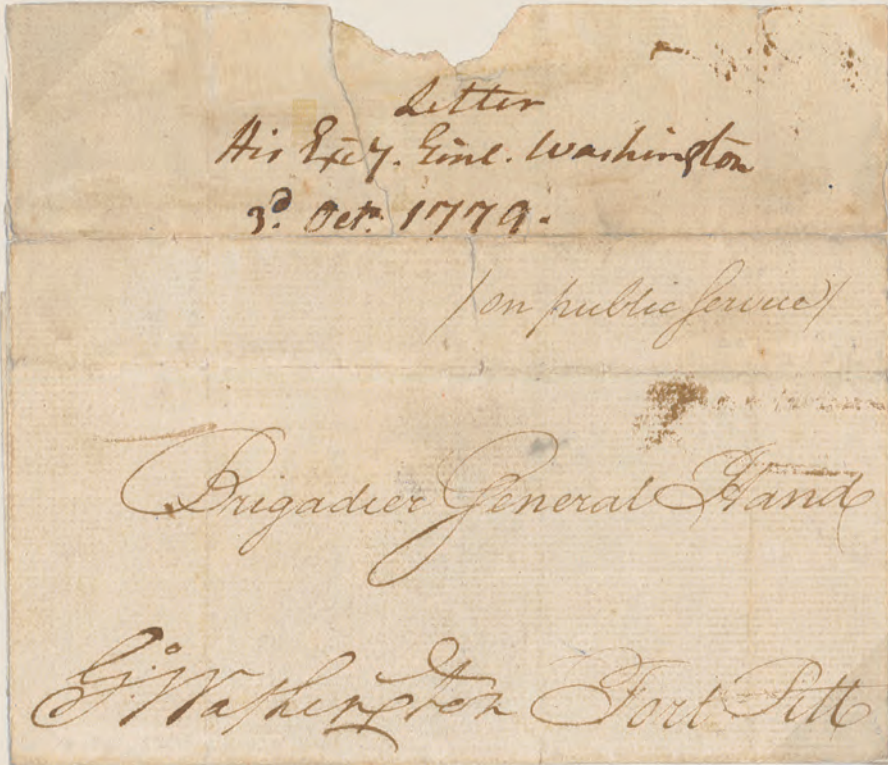 Letter
His Excy. Genl. Washington
3d. Octr. 1779.
/on public Service/
Brigadier General Hand
Go: Washington Fort Pitt